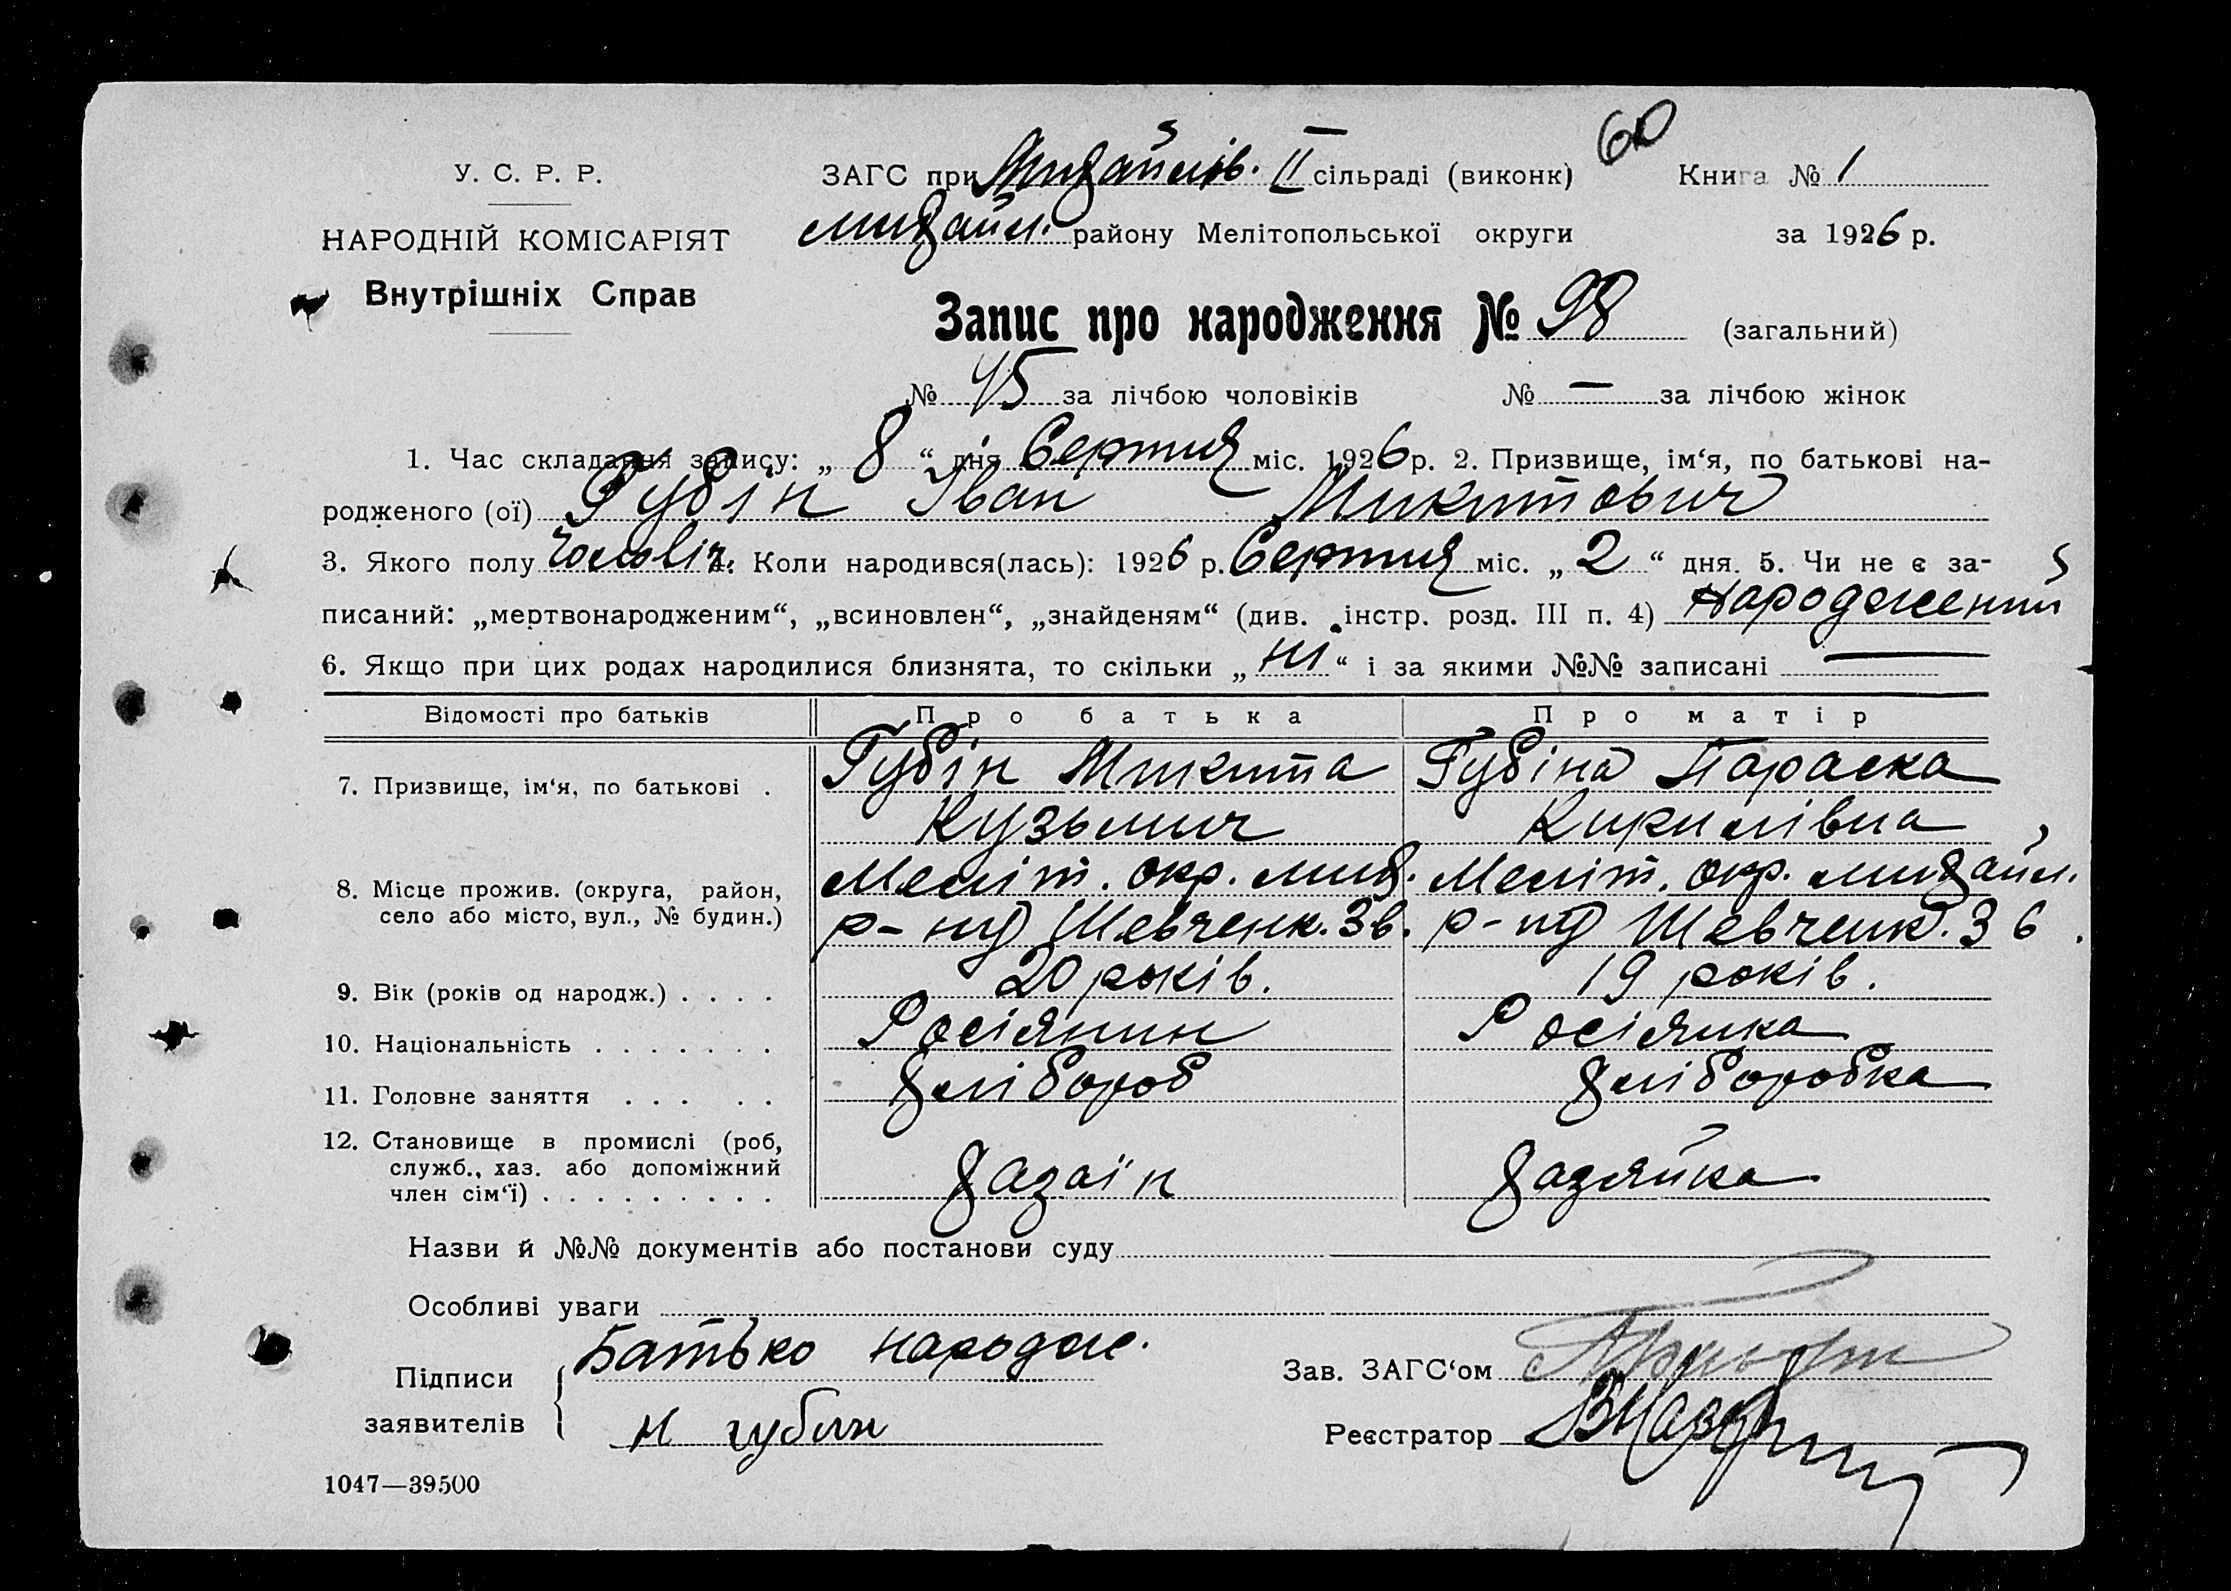 60
У. С. Р. Р.
НАРОДНІЙ КОМІСАРІЯТ
Внутрішніх Справ
ЗАГС при Михайлів. II сільраді (виконк)
Книга № 1
Михайл. району Мелітопольської округи
за 1926 р.
Запис про народження № 98 (загальний)
№ 45 за лічбою чоловіків № — за лічбою жінок
1. Час складання запису: „ 8 “ дня Серпня міс. 1926 р. 2. Призвище, ім‘я, по батькові на-
родженого (ої) Губін Іван Микитович
3. Якого полу Чоловіч. 4. Коли народився(лась): 1926 р. Серпня міс. „ 2 “ дня. 5. Чи не є за-
писаний: „мертвонародженим“, „всиновлен“, „знайденям“ (див. інстр. розд. III п. 4) Народжений
6. Якщо при цих родах народилися близнята, то скільки „ ні “ і за якими №№ записані —
Відомості про батьків Про батька Про матір
7. Призвище, ім‘я, по батькові . Губін Микита Губіна Параска
Кузьмич Кирилівна
8. Місце прожив. (округа, район, Меліт. окр. мих. Меліт. окр. михайл.
село або місто, вул., № будин.) р-ну Шевченк. 36. р-ну Шевченк. 36.
9. Вік (років од народж.) . . . . 20 років. 19 років.
10. Національність . . . . . . . Росіянин Росіянка
11. Головне заняття . . . . . Хлібороб Хліборобка
12. Становище в промислі (роб,
служб., хаз. або допоміжний
член сім‘ї) . . . . . . . . . . Хазаїн Хазяйка
Назви й №№ документів або постанови суду
Особливі уваги
Підписи
заявителів
Батько народж.
Н губин
Зав. ЗАГС‘ом
Реєстратор
1047—39500